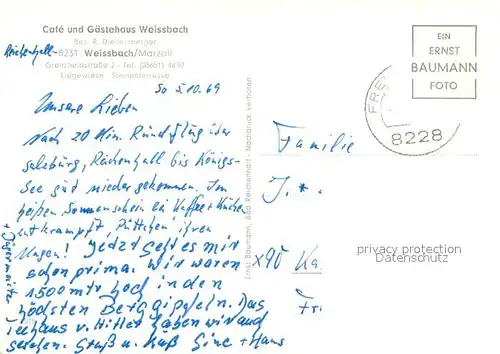 Café und Gästehaus Weissbach
Bes. R. Dienersberger
Reichenhall
8231 Weissbach/Marzoll
Grenzlandstraße 2 - Tel. (08651) 4497
Liegewiese Sonnenterrasse
So 5.10.69
Unsere Lieben
Nach 20 Min. Rundflug über
Salzburg, Reichenhall bis Königs-
See gut nieder gekommen. Im
heißen Sonnenschein bei Kaffee + Kuchen
entkrampft, Püttchen ihren
Magen! Jetzt geht es mir
+ Jägermeister
schon prima. Wir waren
1500 mtr hoch in den
höchsten Berggipfeln. Das
Teehaus v. Hitler haben wir auch
gesehen. Gruß u. Kuß Gine + Hans
Ernst Baumann, Bad Reichenhall - Nachdruck verboten
EIN
ERNST
BAUMANN
FOTO
FRE
8228
Familie
J. *
x90 Ka
privacy protection
Datenschutz
Fr